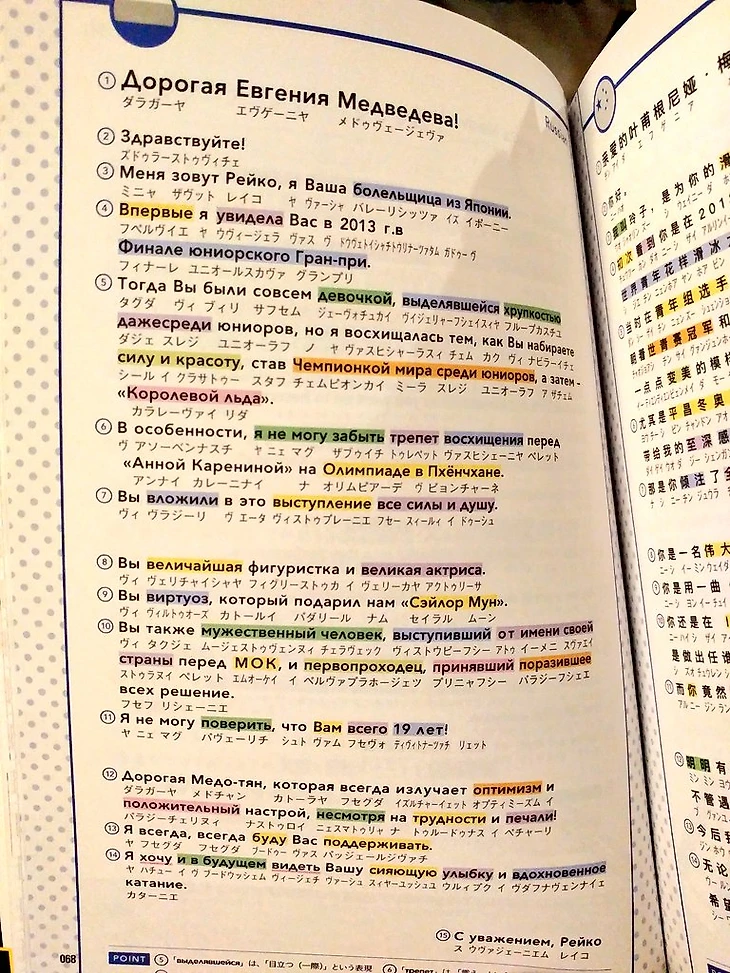 ① Дорогая Евгения Медведева!
ダラガーヤ エヴゲーニヤ メドゥヴェージェヴァ
Russian
② Здравствуйте!
ズドゥラーストゥヴィチェ
③ Меня зовут Рейко, я Ваша болельщица из Японии.
ミニャ ザヴット レイコ ヤ ヴァーシャ バレーリシッツァ イズ イポーニー
④ Впервые я увидела Вас в 2013 г.в
フペルヴイエ ヤ ウヴィージェラ ヴァス ヴ
Финале юниорского Гран-при.
フィナーレ ユニオールスカヴァ グランプリ
⑤ Тогда Вы были совсем девочкой, выделявшейся хрупкостью
タグダ ヴィ ブィリ サフセム ジェーヴォチュカイ
дажесреди юниоров, но я восхищалась тем, как Вы набираете
ダジェ スレジ ユニオーラフ ノ ヤ ヴァスヒシャーラスィ チェム カク ヴィ ナビラーイチェ
силу и красоту, став Чемпионкой мира среди юниоров, а затем -
シール イ クラサトゥー スタフ チェムピオンカイ ミーラ スレジ ユニオーラフ ア ザチェム
«Королевой льда».
カラレーヴァイ リダ
⑥ В особенности, я не могу забыть трепет восхищения перед
ヴ アソーベンナスチ ヤ ニェ マグ ザブゥイチ トゥレペット ヴァスヒシェーニヤ ペレット
«Анной Карениной» на Олимпиаде в Пхёнчхане.
アンナイ カレーニナイ ナ オリムピアーデ ヴ ピョンチャーネ
⑦ Вы вложили в это выступление все силы и душу.
ヴィ ヴラジーリ ヴ エータ ヴィストゥプレーニエ フセー スィールィ イ ドゥーシュ
⑧ Вы величайшая фигуристка и великая актриса.
ヴィ ヴェリチャイシャヤ フィグリーストゥカ イ ヴェリーカヤ アクトゥリーサ
⑨ Вы виртуоз, который подарил нам «Сэйлор Мун».
ヴィ ヴィルトゥオーズ カトールイ パダリール ナム セイラル ムーン
⑩ Вы также мужественный человек, выступивший от имени своей
ヴィ タクジェ ムージェストゥヴェンヌィ チェラヴェック ヴィストゥピーフシー アトゥ イーメニ スヴァエイ
страны перед МОК, и первопроходец, принявший поразившее
ストゥラヌイ ペレット エムオーケイ イ ペルヴァプラホージェツ プリニャフシー パラジーフシェエ
всех решение.
フセフ リシェーニエ
⑪ Я не могу поверить, что Вам всего 19 лет!
ヤ ニェ マグ パヴェーリチ シュト ヴァム フセヴォ ディヴィトナーツァチ リェット
⑫ Дорогая Медо-тян, которая всегда излучает оптимизм и
ダラガーヤ メドチャン カトーラヤ フセグダ イズルチャーイェット オプティミーズム イ
положительный настрой, несмотря на трудности и печали!
パラジーチェリヌィ ナストゥロイ ニェスマトゥリャ ナ トゥルードゥナス イ ペチャーリ
⑬ Я всегда, всегда буду Вас поддерживать.
ヤ フセグダ フセグダ ブードゥー ヴァス パッジェールジヴァチ
⑭ Я хочу и в будущем видеть Вашу сияющую улыбку и вдохновенное
ヤ ハチュー イ ヴ フードウッシェム ヴィージェチ ヴァーシュ スィヤーユッシュユ ウルィプク イ ヴダフナヴェンナイェ
катание.
カターニエ
⑮ С уважением, Рейко
ス ウヴァジェーニエム レイコ
068 POINT ⑤「выделявшейся」は、「目立つ(一際)」という表現 ⑥「трепет」は、
亲爱的叶甫根尼娅・梅
你好。
玲子，是为你的滑
初次看到你是在201
世界青年花样滑冰
当时在青年组选手
世青赛冠军和
一点点变美的模样
尤其是平昌冬奥
带给我的至深感
那是你倾注了全
⑧你是一名伟大
⑨你是用一曲
⑩你还是在
是做出任
⑪而你竟然
⑫明明有
不管遇
⑬今后我
⑭无论
希望